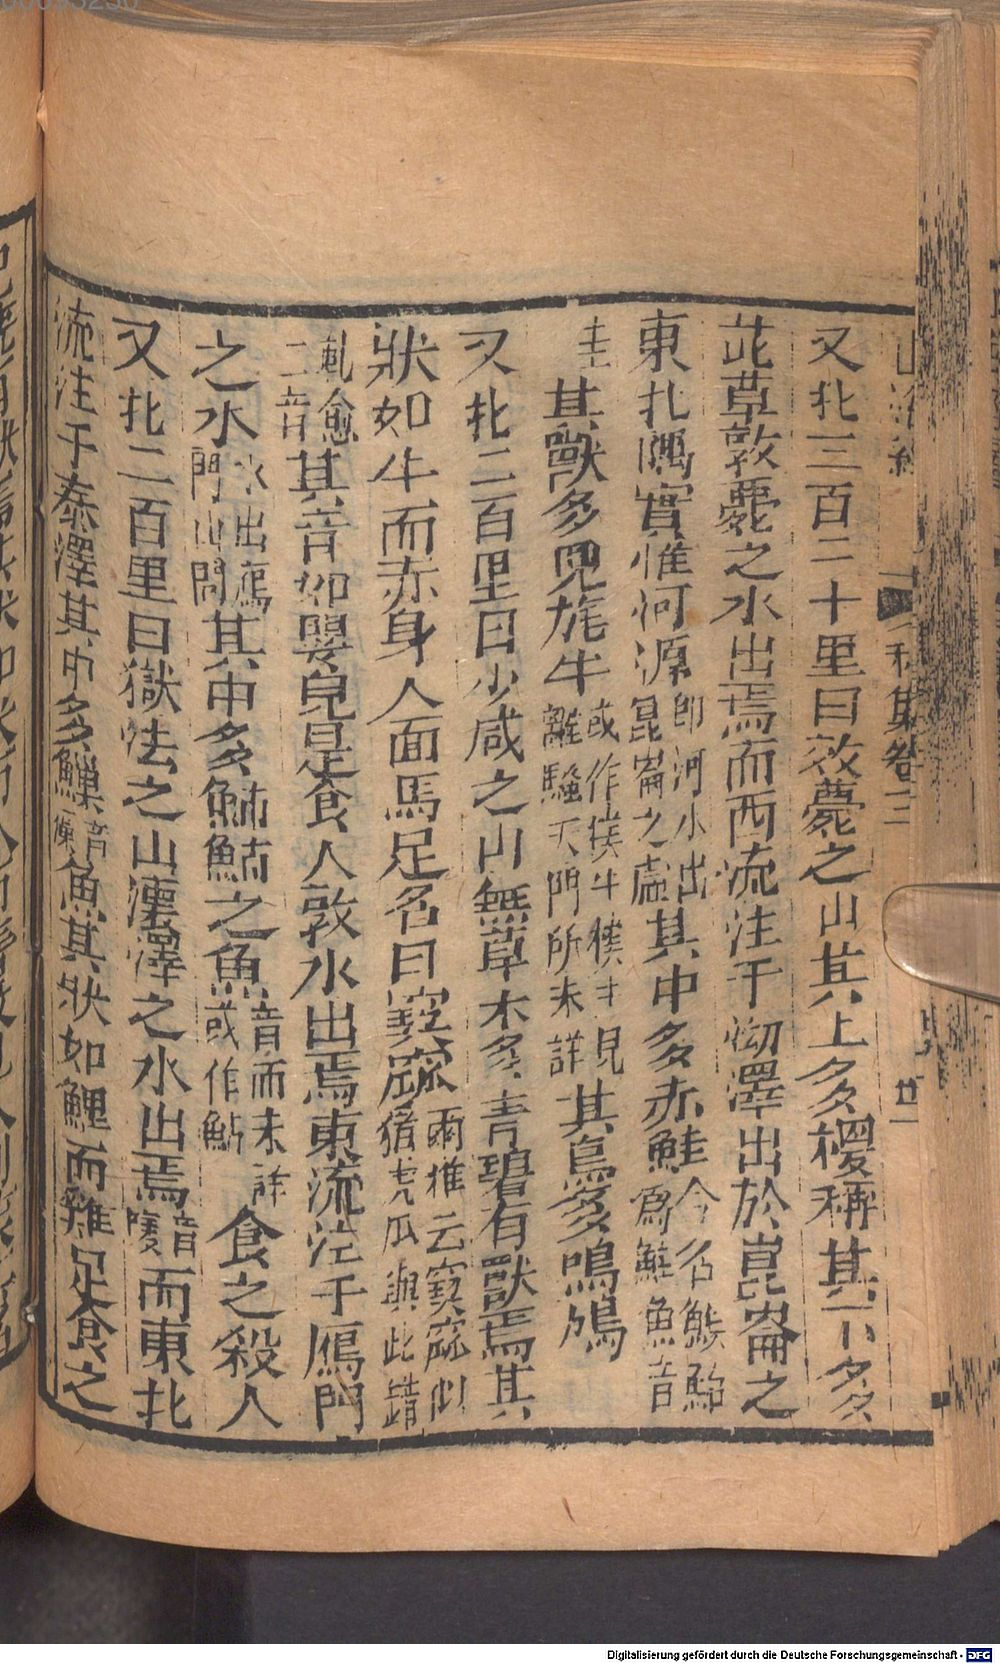 又北三百二十里曰敦薨之山其上多㮨枏其下多
茈草敦薨之水出焉而西流注于泑澤出於崑崙之
東北隅實惟河源即河水出崑崙之虛其中多赤鮭今名鯸鮐為鮭魚音
圭其獸多兕旄牛或作㹒牛㹒牛見離騷天門所未詳其鳥多鳲鳩
又北二百里曰少咸之山無草木多青碧有獸焉其
狀如牛而赤身人面馬足名曰窫窳爾雅云窫窳似貙虎爪與此錯
軋愈二音其音如嬰兒是食人敦水出焉東流注于鴈門
之水水出鴈門山間其中多䰽䰽之魚音而未詳或作鮎食之殺人
又北二百里曰獄法之山瀤澤之水出焉音懷而東北
流注于泰澤其中多䲃音藻魚其狀如鯉而雞足食之
山海經
卷三
Digitalisierung gefördert durch die Deutsche Forschungsgemeinschaft - DFG